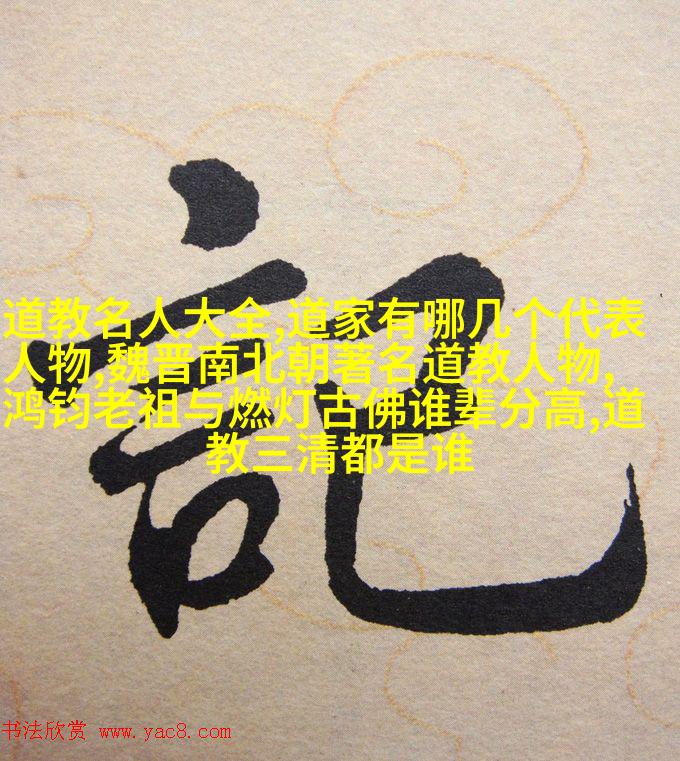 記
道教名人大全,道家有哪几个代表
人物,魏晋南北朝著名道教人物,
鸿钧老祖与燃灯古佛谁辈分高,道
教三清都是谁
书法欣赏 www.yac8.com